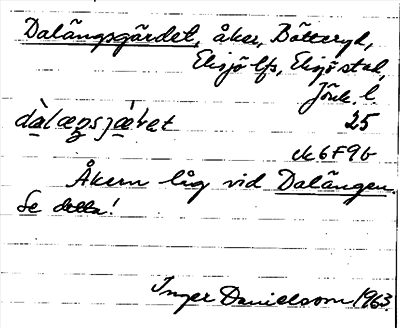 Dalängsgärdet, åker, Bälteryd,
Eksjö lfs, Eksjö stad,
Jönk. l.
dàlæŋsjæ̀ɽet 25
ek 6F9b
Åkern låg vid Dalängen.
Se detta!
Inger Danielsson 1963.